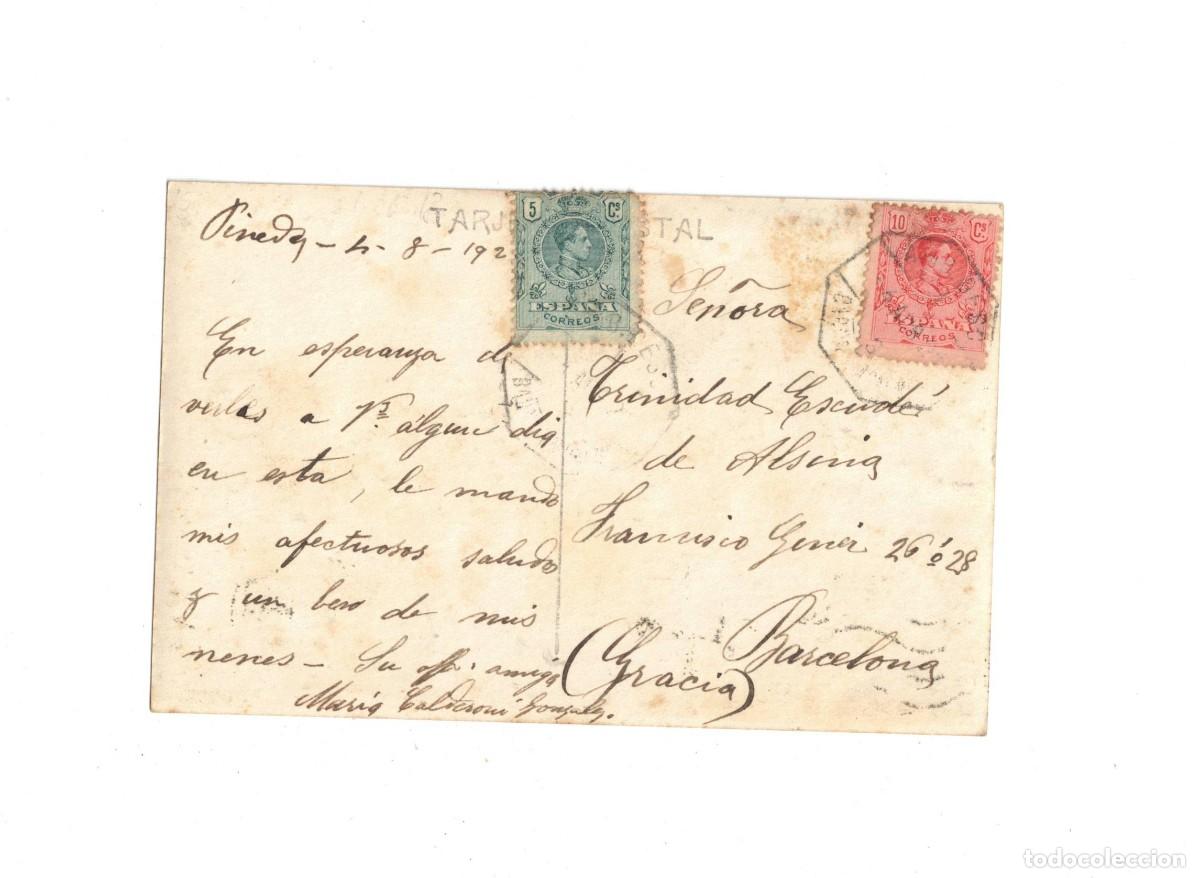 TARJ STAL
Pineda - 4 - 8 - 192
En esperanza d
verles a Vs. algun dia
en esta, le mando
mis afectuosos saludo
y un beso de mis
nenes - Su aff. amiga
Maria Calderoni Gonzalez.
5 Cs
ESPAÑA
CORREOS
10 Cs
ESPAÑA
CORREOS
Señora
Trinidad Escudé
de Alsina
Francisco Giner 26 ó 28
Barcelona
(Gracia)
todocoleccion